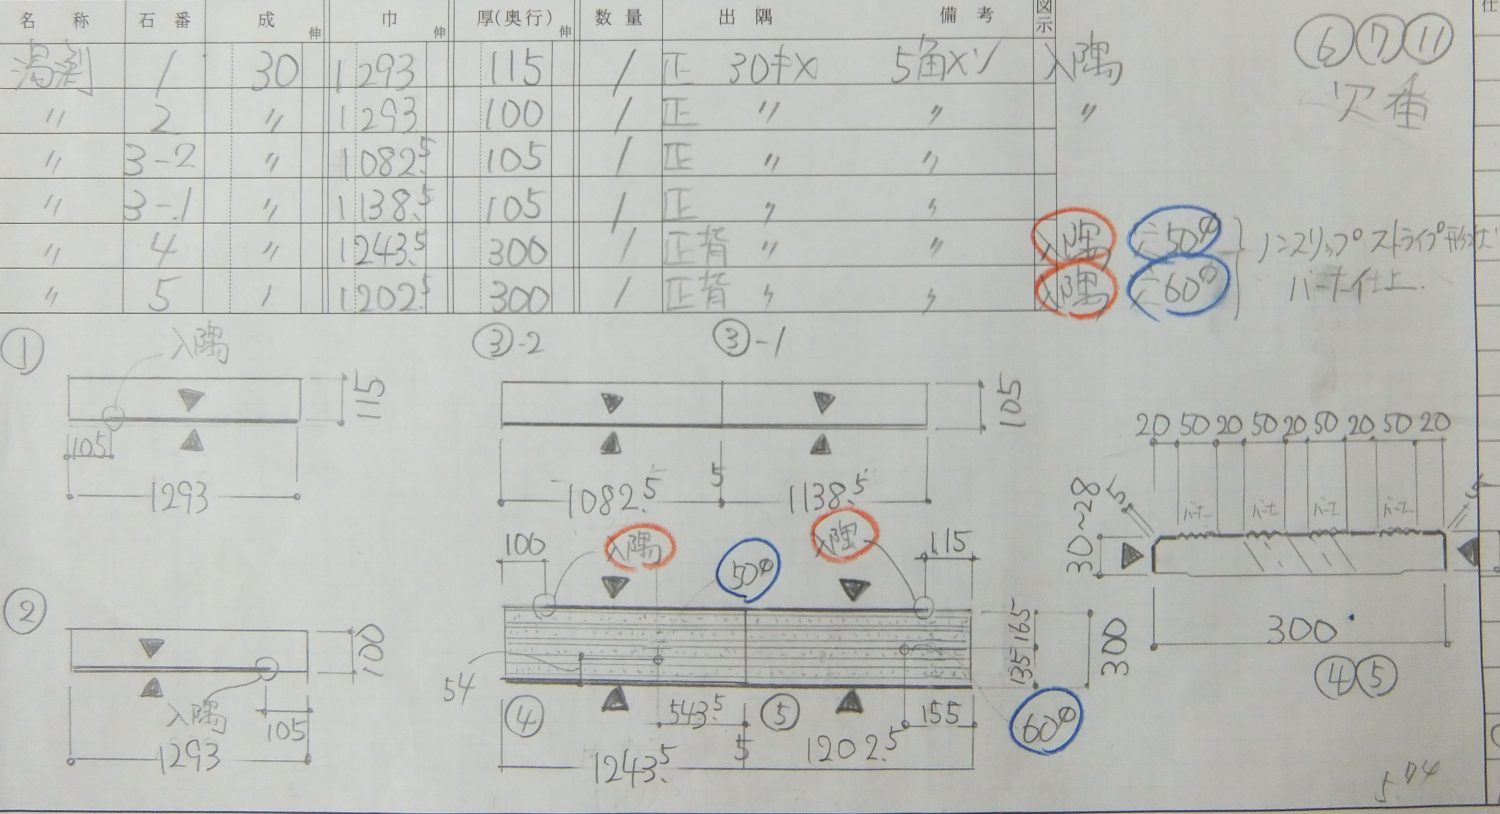 名称 石番 成 伸 巾 伸 厚(奥行) 伸 数量 出隅 備考 図示 仕
1 30 1293 115 1 正 30キメ 5角メン 入隅
〃 2 〃 1293 100 1 正 〃 〃 〃
〃 3-2 〃 1082.5 105 1 正 〃 〃
〃 3-1 〃 1138.5 105 1 正 〃 〃
〃 4 〃 1243.5 300 1 正背 〃 〃 入隅 50φ
〃 5 〃 1202.5 300 1 正背 〃 〃 入隅 60φ
⑥⑦⑪
欠番
ノンスリップストライプ形状
バーナー仕上
① 入隅
115
105
1293
③-2 ③-1
105
1082.5 5 1138.5
② 100
入隅
105
1293
100 入隅 50φ 入隅 115
165
135
300
54
④ 543.5 ⑤ 155 60φ
1243.5 5 1202.5
20 50 20 50 20 50 20 50 20
5
バーナー バーナー バーナー バーナー
30~28
300
④⑤
5.74